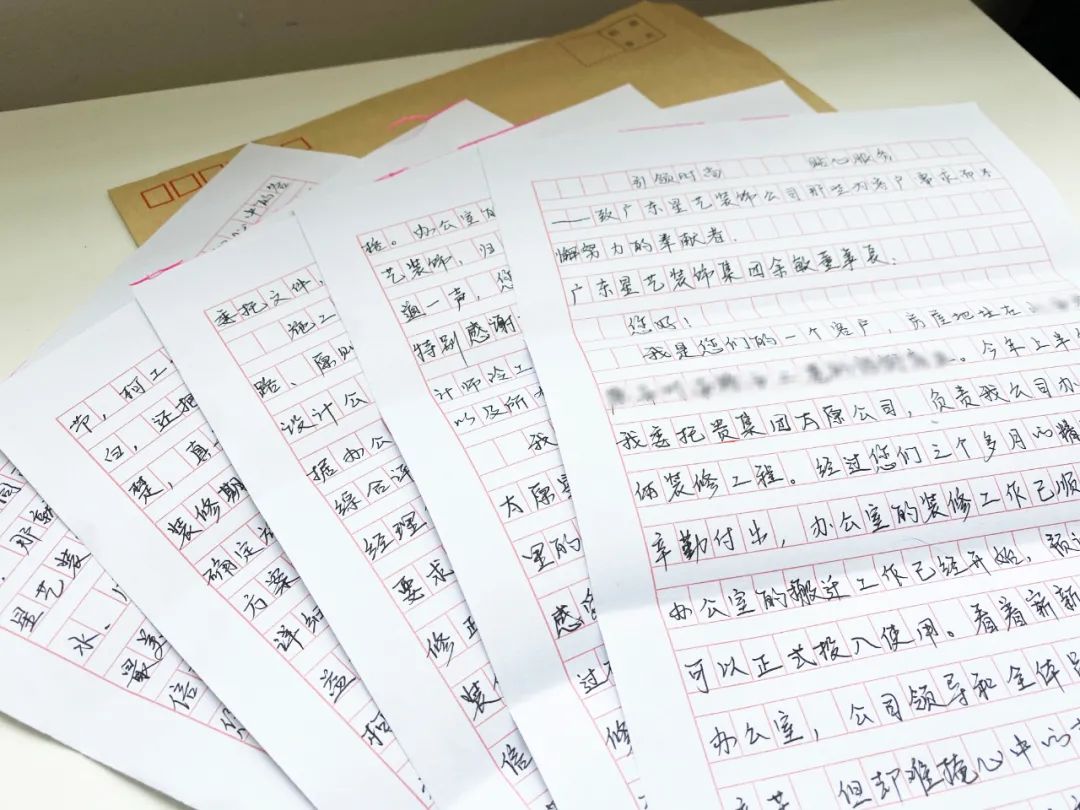 引领时尚 贴心服务
——致广东星艺装饰公司那些为客户事求而不
懈努力的奉献者.
广东星艺装饰集团余敏董事长:
您好!
我是您们的一个客户,房屋地址在
。今年上半
我委托贵集团太原公司,负责我公司办
俩装修工程。经过您们三个多月的精
辛勤付出,办公室的装修工作已顺
办公室的搬迁工作已经开始,预
可以正式投入使用。看着崭新
办公室,公司领导和全体员
但却难掩心中的
格。办公室
艺装饰,归
道一声,您
特别感谢
计师冷工
以及所有
我
太原星
里的
感
过
修
委托文件,
施工
路、原
设计公
据办公
综合评
经理
要求
修正
装
信
节,柯工
白,还把
楚,真
装修期
确定
方案
详细
益
柯
同
那
星艺装
水.
最美
信